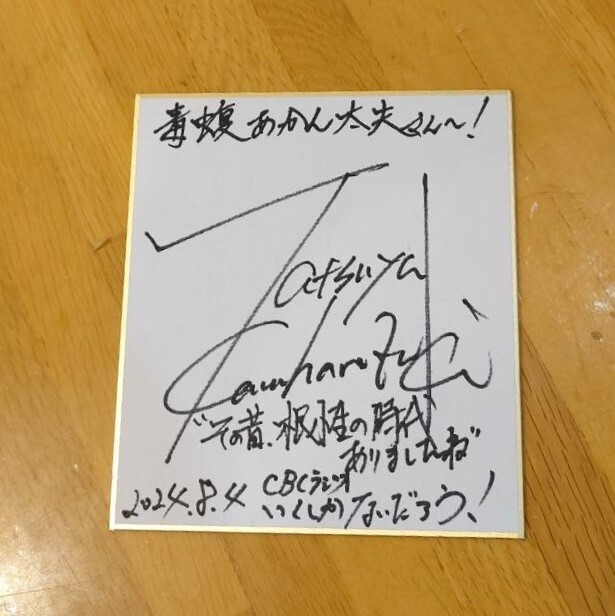 毒蝮あかん太夫さん〜!
Tatsuya
Kawaharazuki
"その昔、根性の時代
ありましたね"
2024.8.4 CBCラジオ
いくしかないだろう!